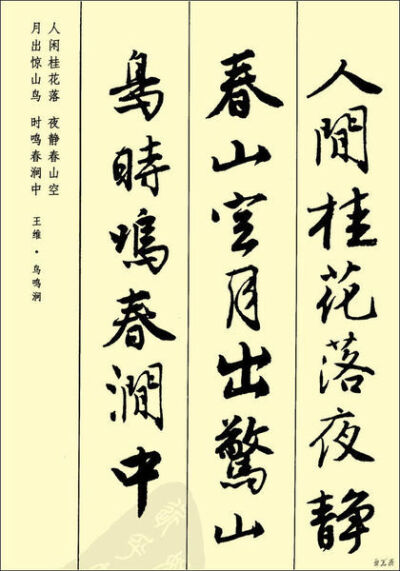 人間桂花落夜静
春山空月出驚山
鳥時鳴春澗中
人闲桂花落 夜静春山空
月出惊山鸟 时鸣春涧中
王维·鸟鸣涧